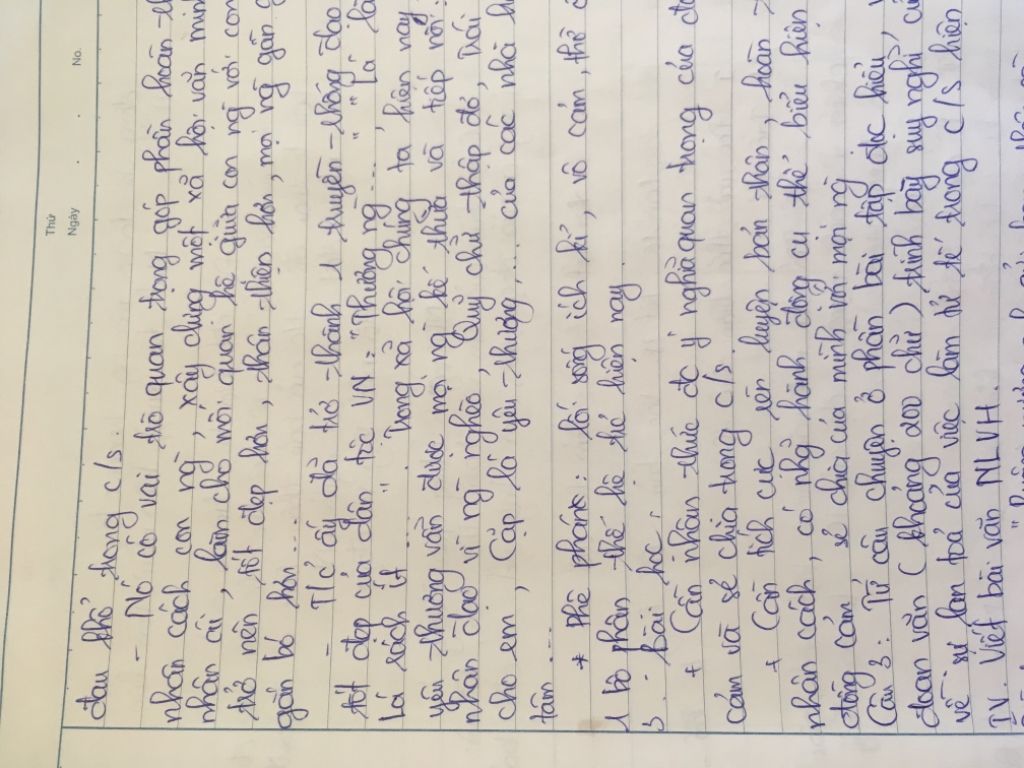 Thứ
Ngày . . No.
đau khổ trong c/s.
- Nó có vai trò quan trọng góp phần hoàn th
nhân cách con ng`, xây dựng một xã hội văn minh
nhân ái, làm cho mối quan hệ giữa con ng` với con
trở nên tốt đẹp hơn, thân thiện hơn, mọi ng` gần g
gắn bó hơn...
- T/c ấy đã trở thành 1 truyền thống đạo
tốt đẹp của dân tộc VN: "Thương ng` ... " "Lá là
Lá rách ... trong xã hội chúng ta hiện nay
yêu thương vẫn được mọi ng` kế thừa và tiếp nối:
nhân đạo vì ng` nghèo, Quỹ chữ thập đỏ, Trái
cho em, Cặp lá yêu thương... của các nhà h
tâm...
* Phê phán: lối sống ích kỉ, vô cảm, thờ ơ
1 bộ phận thế hệ trẻ hiện nay.
3. - bài học:
+ Cần nhận thức đc ý nghĩa quan trọng của đ
cảm và sẻ chia trong c/s.
+ Cần tích cực rèn luyện bản thân, hoàn t
nhân cách, có nhg~ hành động cụ thể biểu hiện
đồng cảm, sẻ chia của mình với mọi ng`
Câu 3: Từ câu chuyện ở phần bài tập đọc hiểu, v
đoạn văn (khoảng 200 chữ) trình bày suy nghĩ củ
về sự lan toả của việc làm tử tế trong c/s hiện
IV. Viết bài văn NLVH.